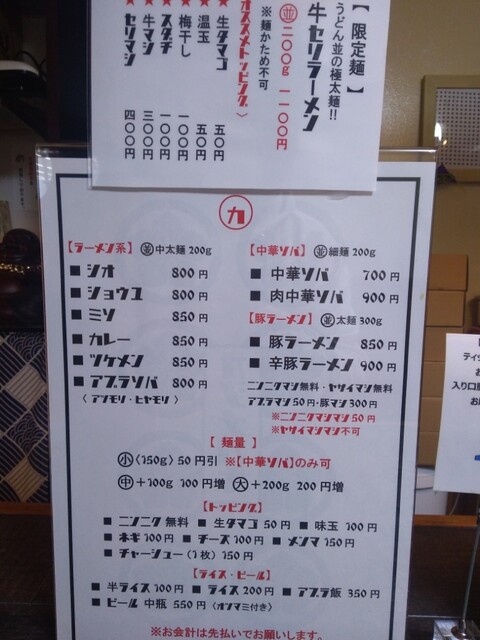 【限定麺】
うどん並の極太麺!!
牛セリラーメン
並 二〇〇g 一一〇〇円
※麺かため不可
オススメトッピング〉
★生タマゴ 五〇円
★温玉 五〇円
★梅干し 一〇〇円
★スダチ 一〇〇円
★牛マシ 三〇〇円
★セリマシ 四〇〇円
カ
【ラーメン系】 並 中太麺 200g
■ シオ 800円
■ ショウユ 800円
■ ミソ 850円
■ カレー 850円
■ ツケメン 850円
■ アブラソバ 800円
〈 アツモリ・ヒヤモリ 〉
【中華ソバ】 並 細麺 200g
■ 中華ソバ 700円
■ 肉中華ソバ 900円
【豚ラーメン】 並 太麺 300g
■ 豚ラーメン 850円
■ 辛豚ラーメン 900円
ニンニクマシ無料・ヤサイマシ無料
アブラマシ50円・豚マシ300円
※ニンニクマシマシ 50円
※ヤサイマシマシ不可
【 麺量 】
小〈150g〉50円引 ※【中華ソバ】のみ可
中+100g 100円増 大+200g 200円増
【トッピング】
■ ニンニク 無料 ■ 生タマゴ 50円 ■ 味玉 100円
■ ネギ 100円 ■ チーズ 100円 ■ メンマ 150円
■ チャーシュー〈1枚〉150円
【ライス・ビール】
■ 半ライス 100円 ■ ライス 200円 ■ アブラ飯 350円
■ ビール 中瓶 550円〈オツマミ付き〉
※お会計は先払いでお願いします。
ティッ
入り口